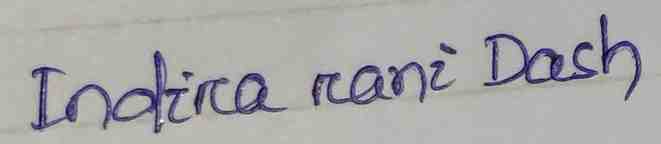 Indira rani Dash